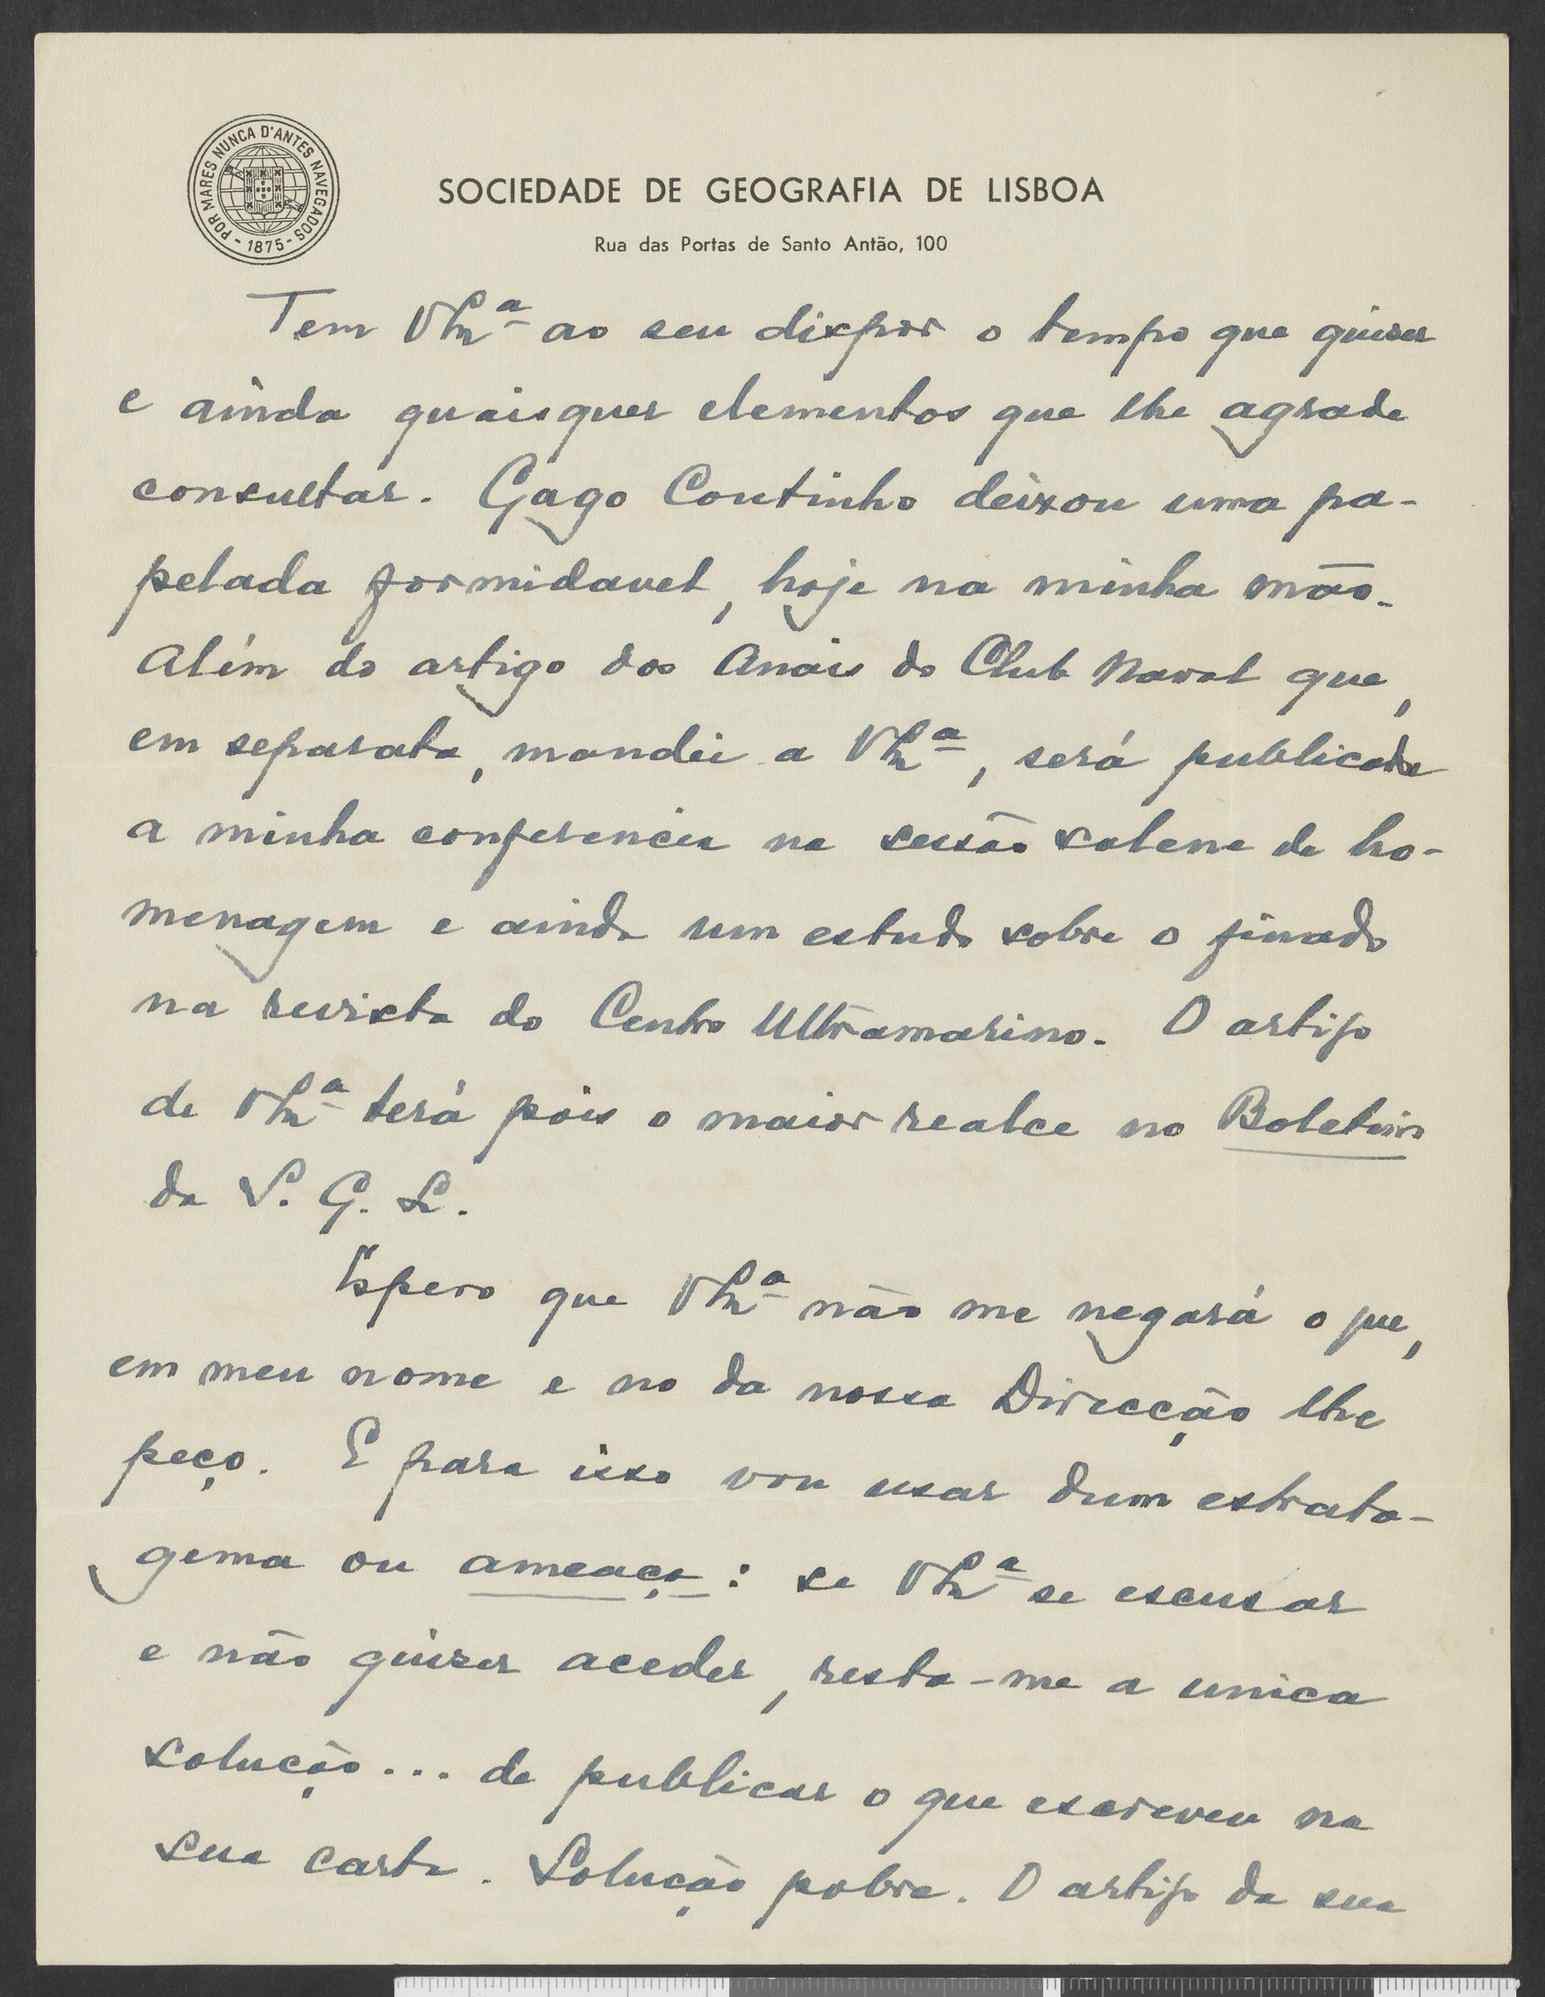 POR MARES NUNCA D'ANTES NAVEGADOS - 1875 -
SOCIEDADE DE GEOGRAFIA DE LISBOA
Rua das Portas de Santo Antão, 100
Tem VEx.ª ao seu dispor o tempo que quiser
e ainda quaisquer elementos que lhe agrade
consultar. Gago Coutinho deixou uma pa-
pelada formidavel, hoje na minha mão.
Além do artigo dos Anais do Club Naval que,
em separata, mandei a VEx.ª, será publicada
a minha conferencia na sessão solene de ho-
menagem e ainda um estudo sobre o finado
na revista do Centro Ultramarino. O artigo
de VEx.ª terá pois o maior realce no Boletim
da S. G. L.
Espero que VEx.ª não me negará o que,
em meu nome e no da nossa Direcção lhe
peço. E para isso vou usar dum estrata-
gema ou ameaça: se VEx.ª se escusar
e não quiser aceder, resta-me a unica
solução... de publicar o que escreveu na
sua carta. Solução pobre. O artigo da sua